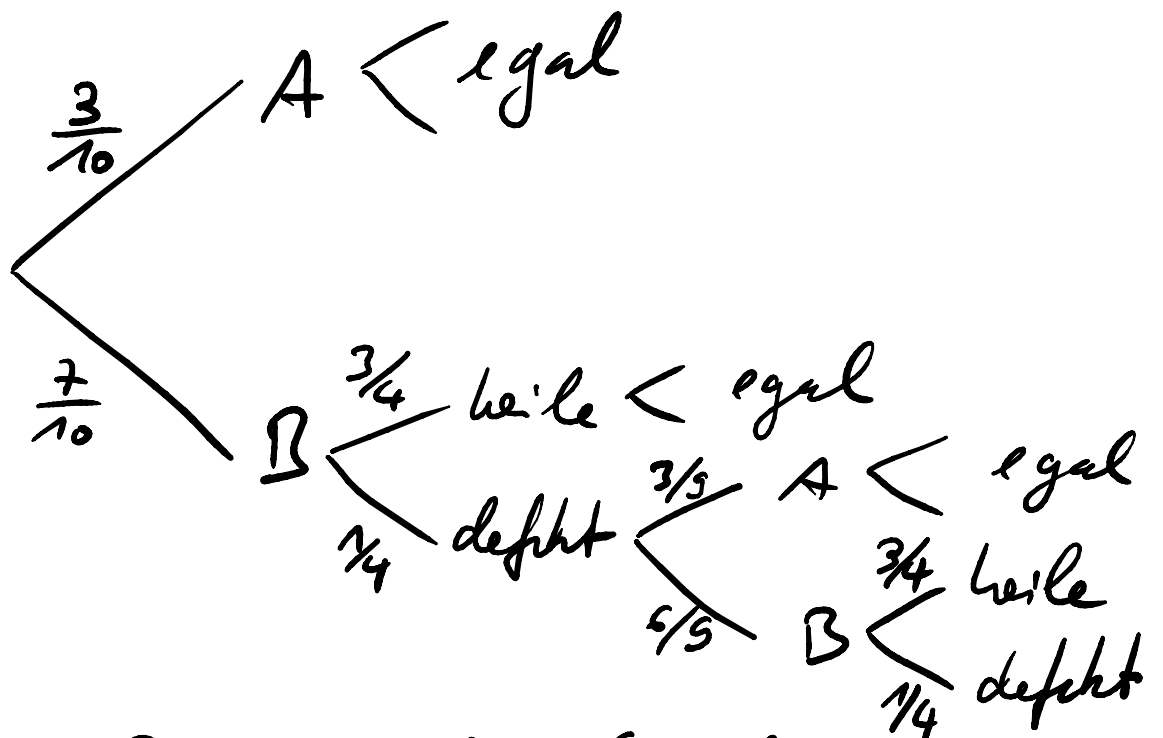 3/10 A < egal
7/10 B
3/4 heile < egal
1/4 defekt
3/9 A < egal
6/9 B
3/4 heile
1/4 defekt